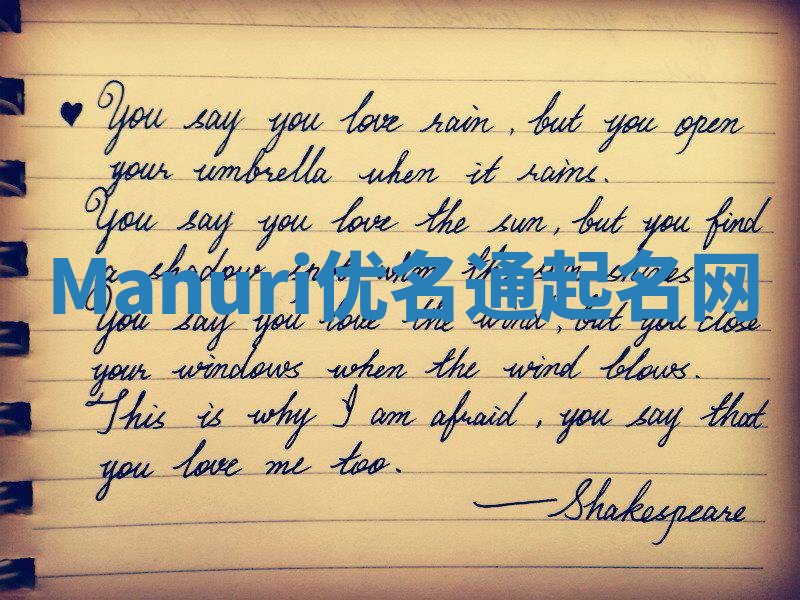 You say you love rain, but you open
your umbrella when it rains.
You say you love the sun, but you find
a shadow spot when the sun shines
Manuri优名通起名网
You say you love the wind, but you close
your windows when the wind blows.
This is why I am afraid, you say that
you love me too.
—Shakespeare